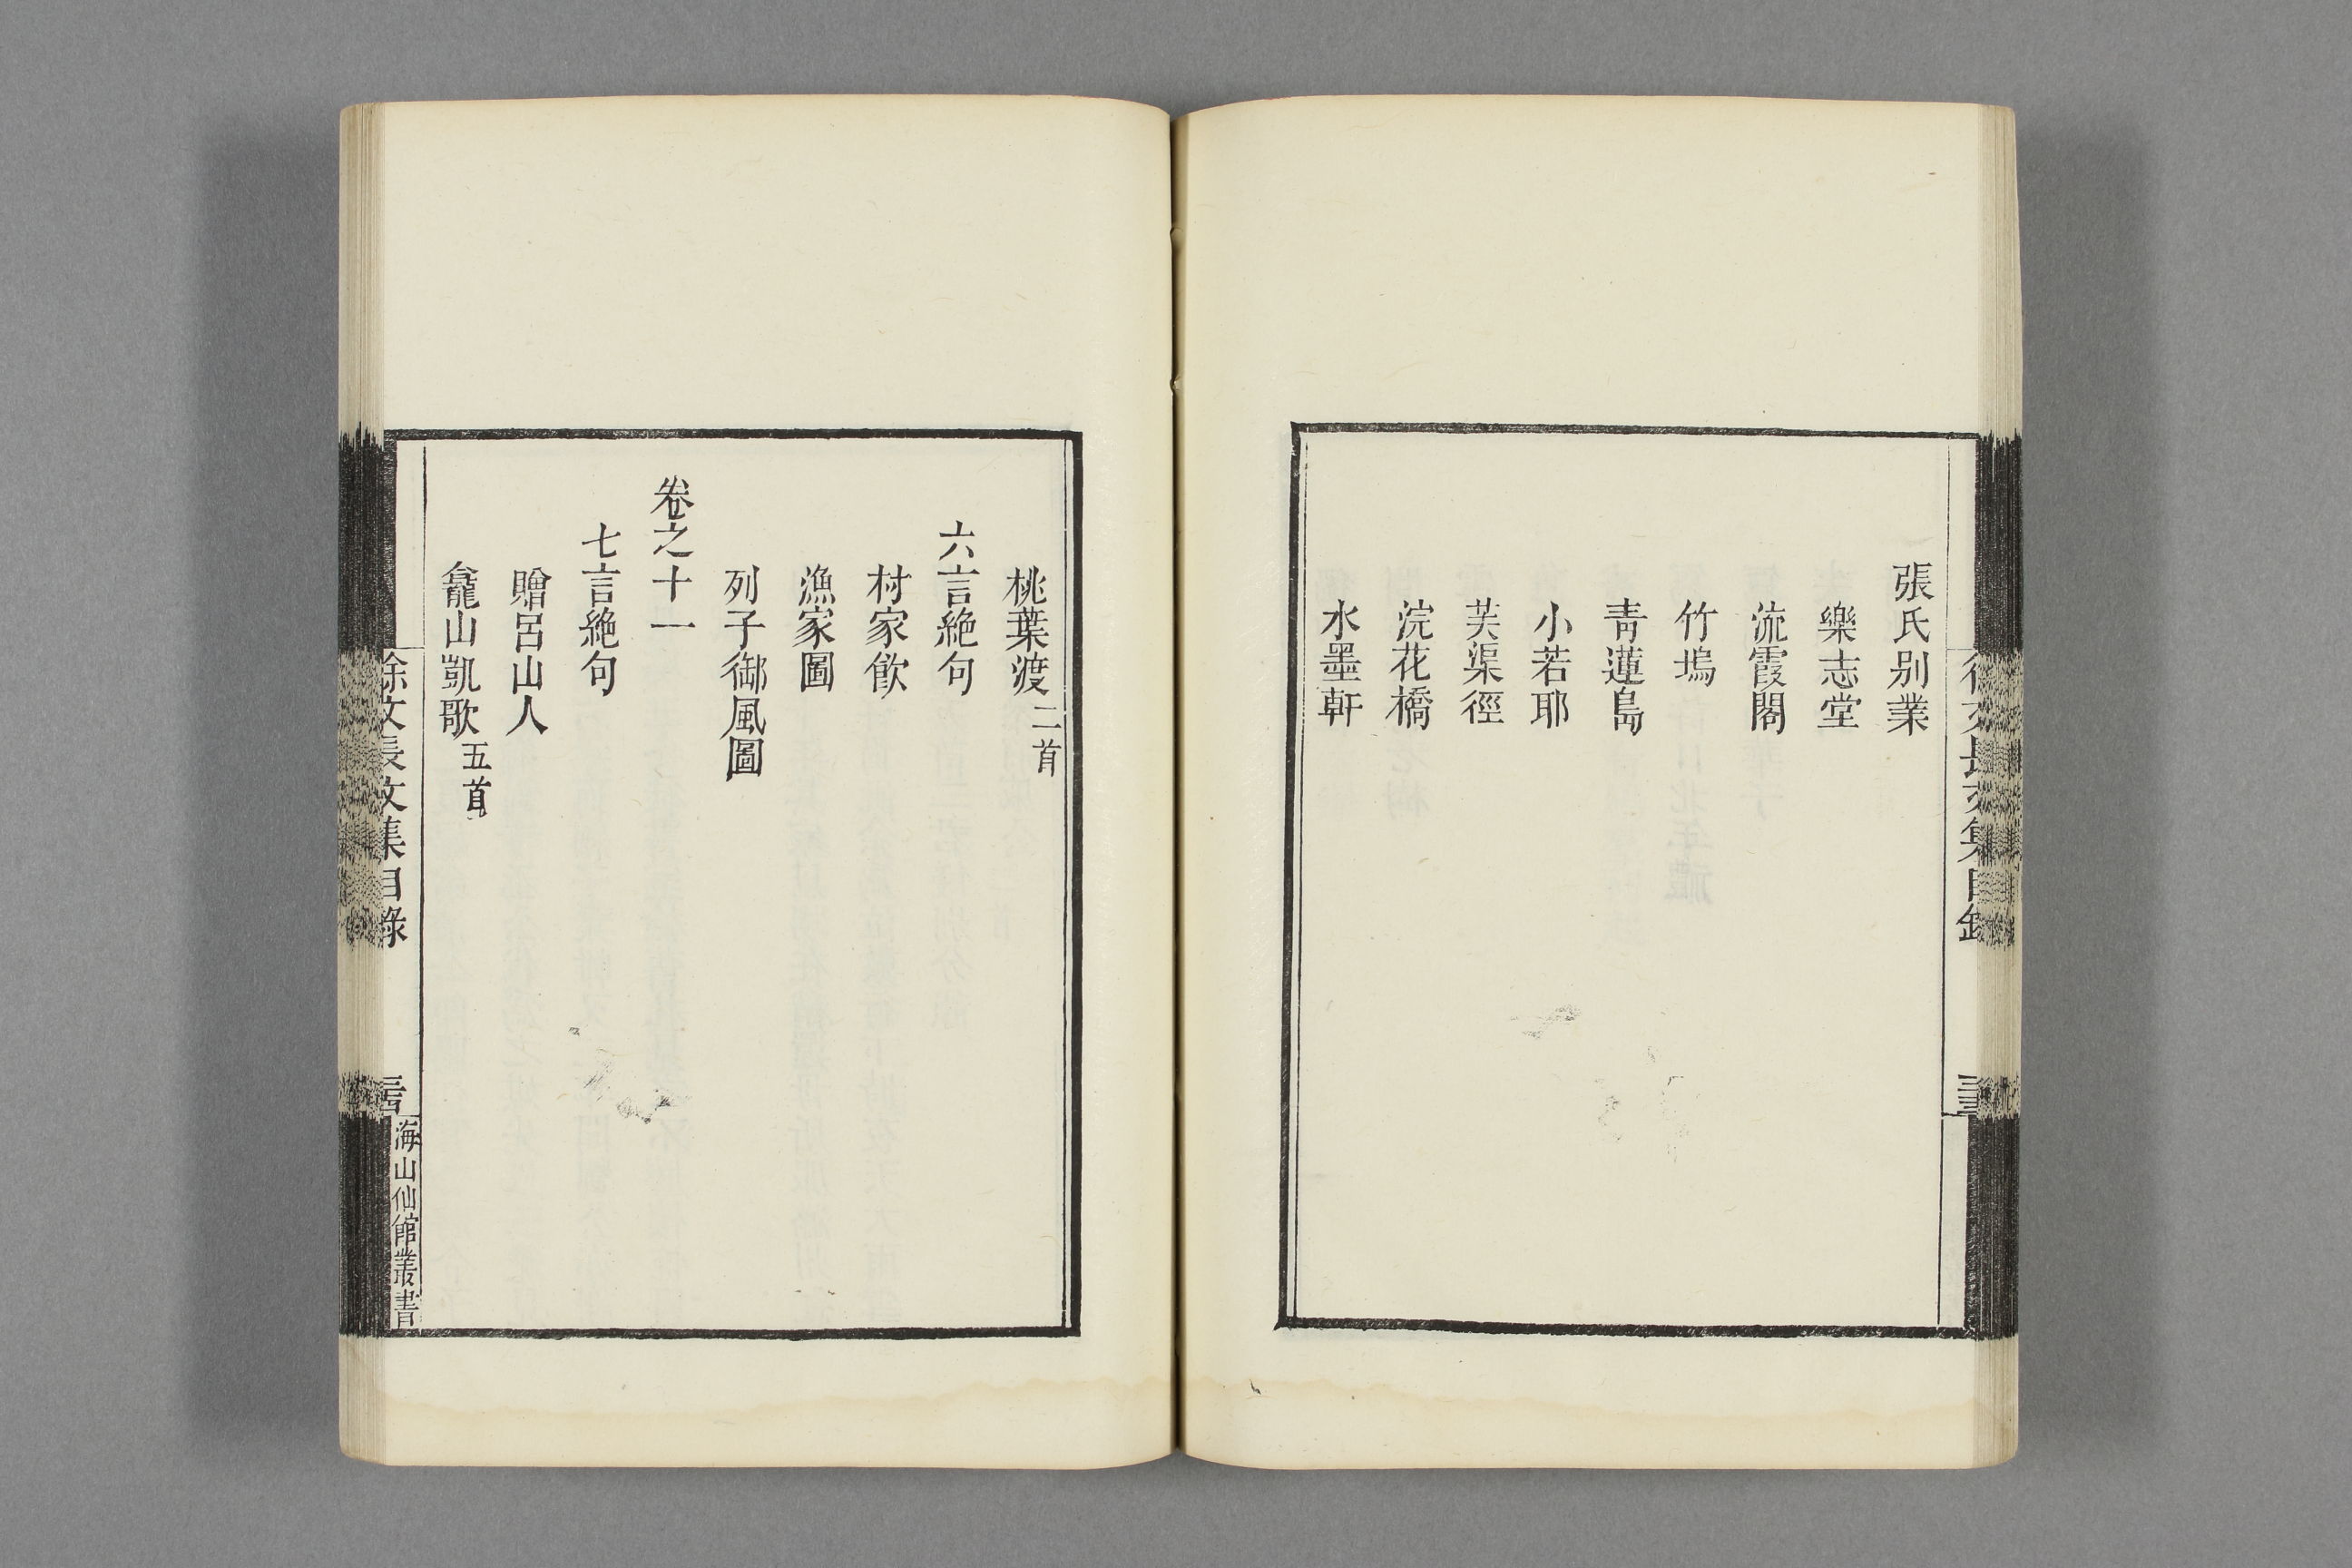 張氏别業
樂志堂
流霞閣
竹塢
青蓮島
小若耶
芙渠徑
浣花橋
水墨軒
桃葉渡二首
六言絶句
村家飲
漁家圖
列子御風圖
卷之十一
七言絶句
贈呂山人
龕山凱歌五首
徐文長文集目錄
海山仙館叢書